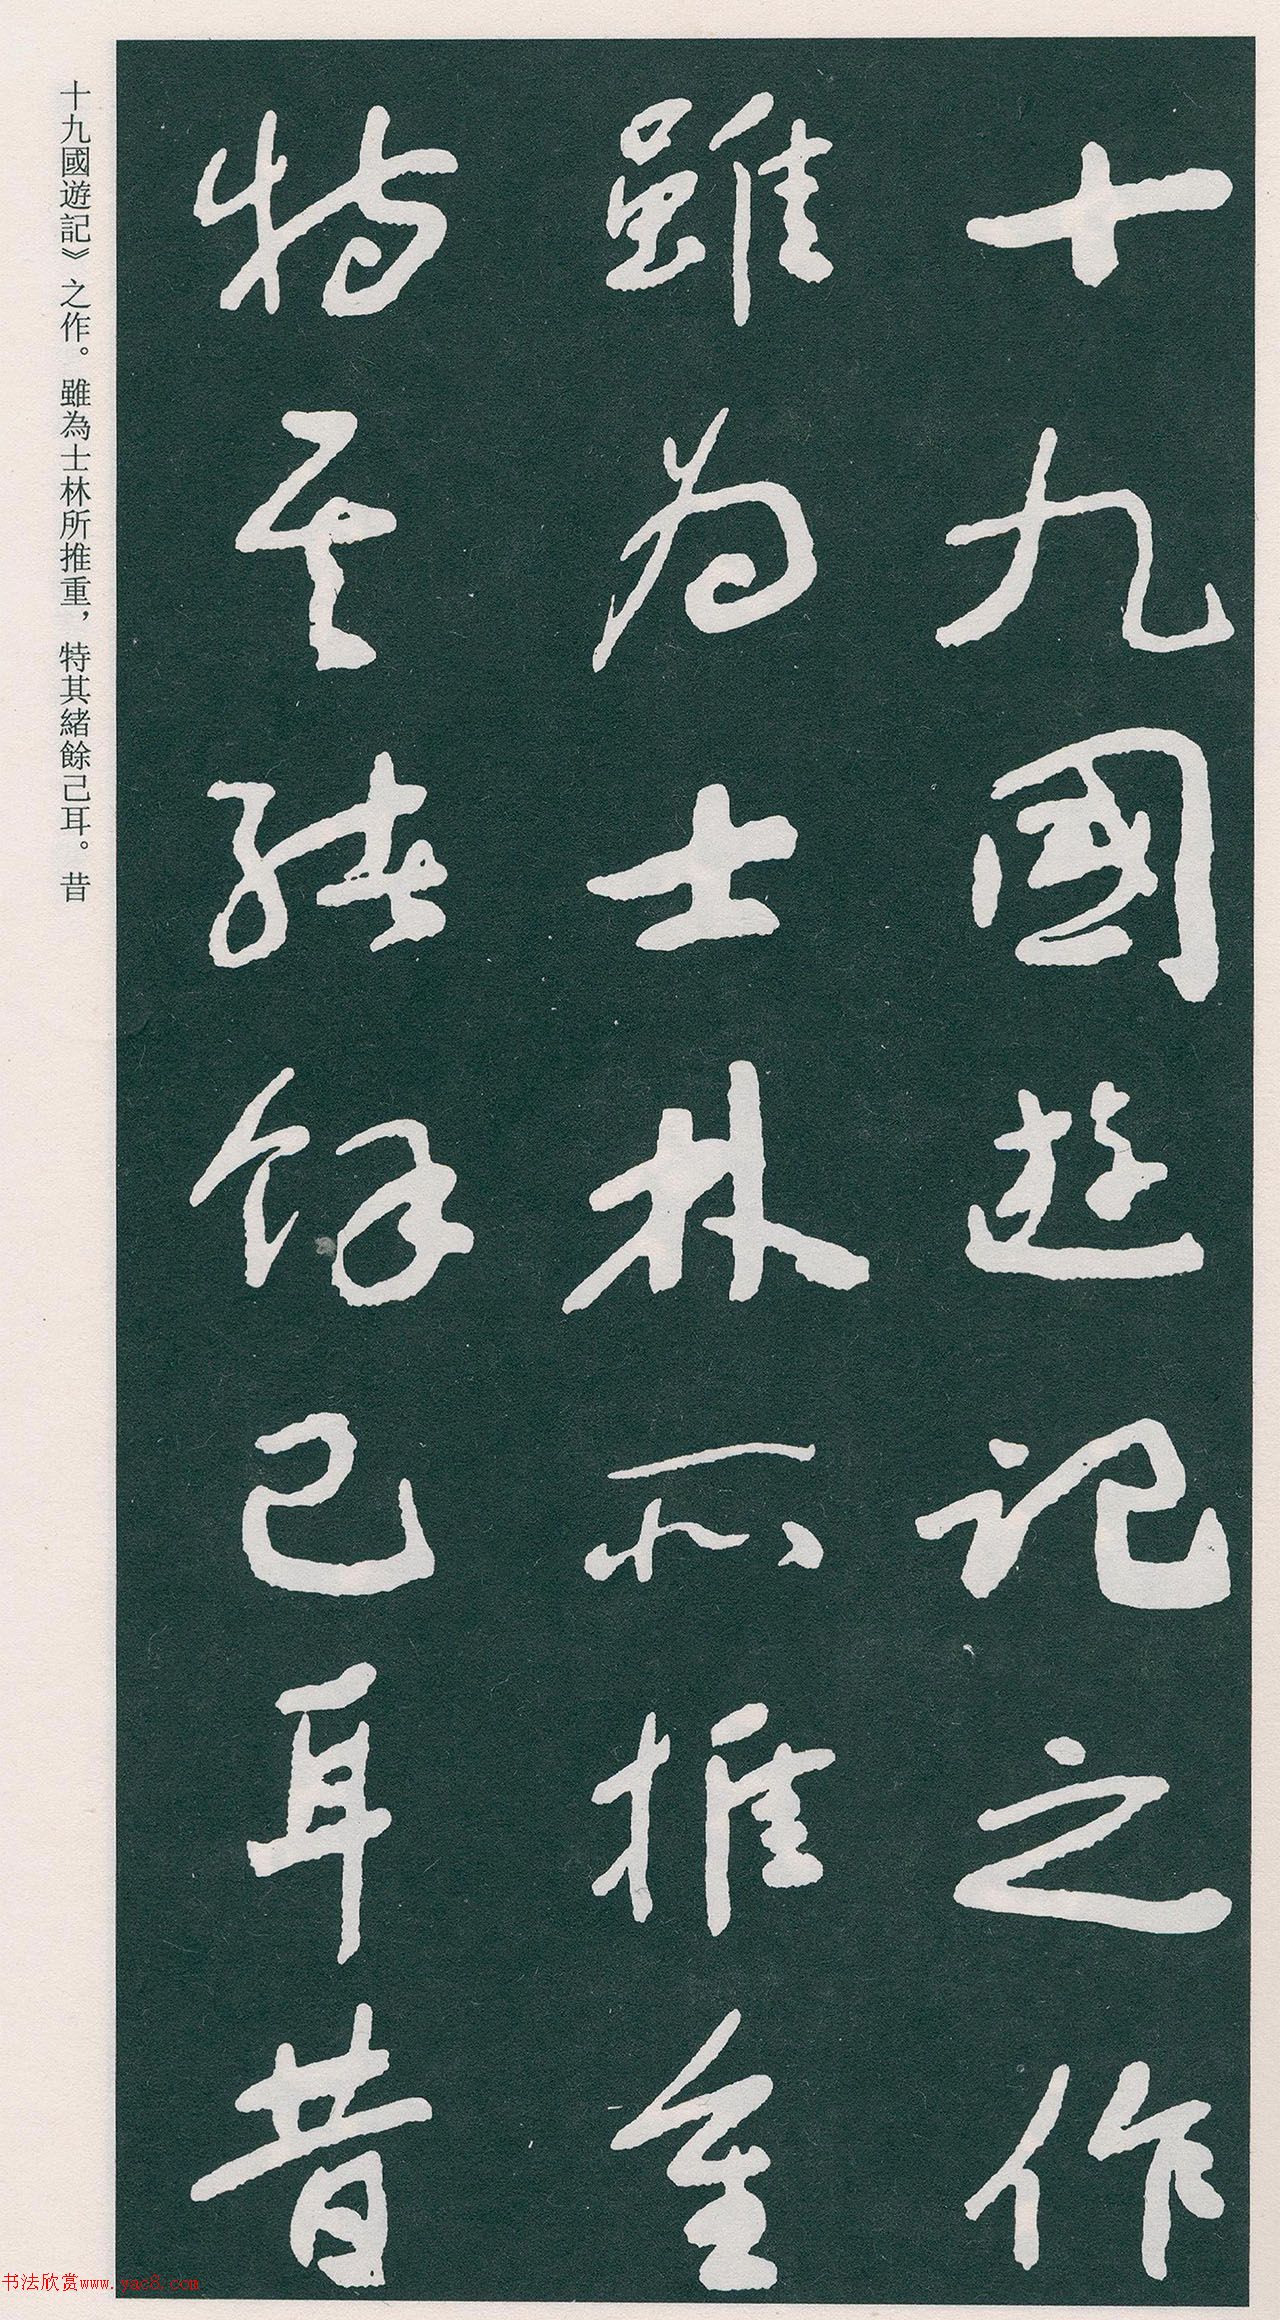 十九國遊記之作
雖為士林所推重
特其緒餘已耳昔
十九國遊記》之作。雖為士林所推重，特其緒餘己耳。昔
书法欣赏www.yac8.com